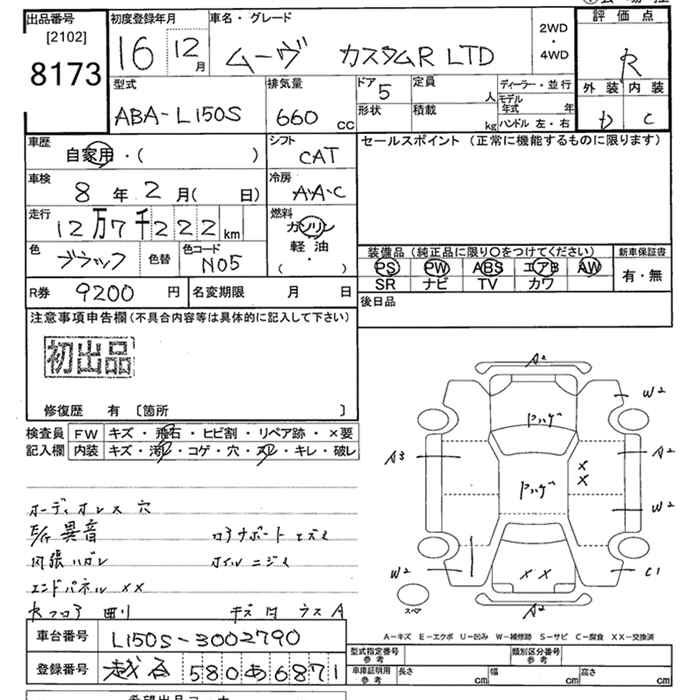 出品番号 [2102] 8173
初度登録年月 16 12月
車名・グレード ムーヴ カスタムR LTD
2WD・4WD
評価点 R
外装 内装
D C
型式 ABA-L150S
排気量 660 CC
ドア 5
定員 人
形状
積載 kg
ディーラー・並行
モデル年式 年
ハンドル 左・右
車歴 自家用・( )
シフト CAT
セールスポイント (正常に機能するものに限ります)
車検 8年2月( 日)
冷房 AAC
走行 12万7千222km
燃料 ガソリン 軽油 ・ ( )
色 ブラック
色替
色コード N05
装備品 (純正品に限り○をつけてください)
新車保証書
PS PW ABS エアB AW
有・無
SR ナビ TV カワ
R券 9200円
名変期限 月 日
後日品
注意事項申告欄(不具合内容等は具体的に記入して下さい)
初出品
修復歴 有 〔箇所 〕
検査員記入欄 FW キズ・飛石・ヒビ割・リペア跡・×要
内装 キズ・汚・コゲ・穴・スレ・キレ・破レ
オーディオレス 穴
異音
内張ハガレ
エンドパネル ××
A2
W2
A3
A2
W2
W2
C1
A2
×
×
××
スペア
A-キズ E-エクボ U-凹み W-補修跡 S-サビ C-腐食 XX-交換済
車台番号 L150S-3002790
登録番号 越谷 580あ6871
型式指定番号 参考
類別区分番号 参考
車庫証明用 参考 長さ cm 幅 cm 高さ cm